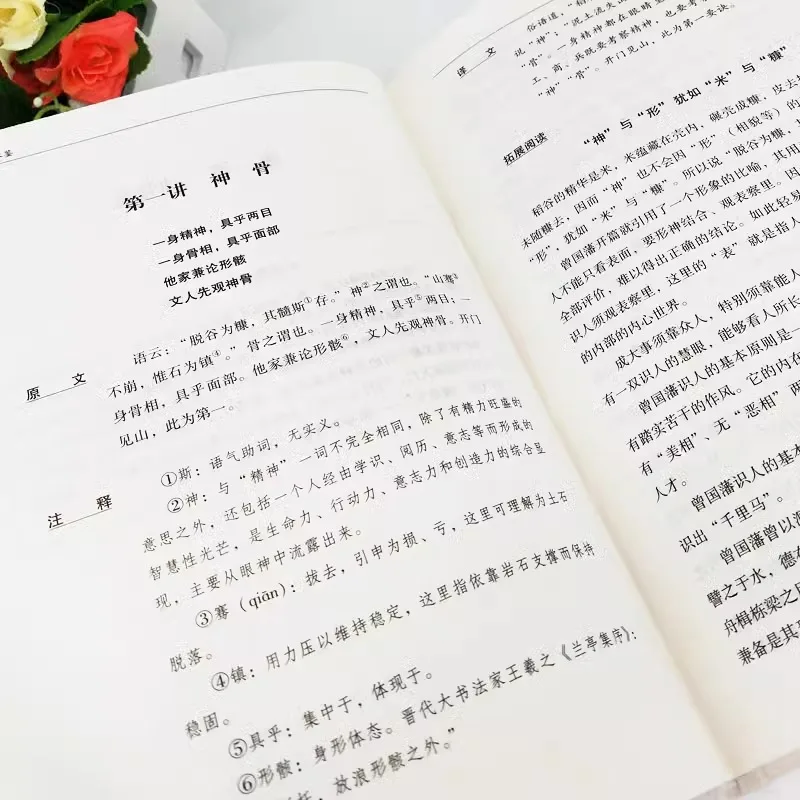 鉴
第一讲 神 骨
一身精神，具乎两目
一身骨相，具乎面部
他家兼论形骸
文人先观神骨
原 文
语云：“脱谷为糠，其髓斯①存。”神②之谓也。“山骞③
不崩，惟石为镇④。”骨之谓也。一身精神，具乎⑤两目；一
身骨相，具乎面部。他家兼论形骸⑥，文人先观神骨。开门
见山，此为第一。
注 释
①斯：语气助词，无实义。
②神：与“精神”一词不完全相同，除了有精力旺盛的
意思之外，还包括一个人经由学识、阅历、意志等而形成的
智慧性光芒，是生命力、行动力、意志力和创造力的综合显
现，主要从眼神中流露出来。
③骞（qiān）：拔去，引申为损、亏，这里可理解为土石
脱落。
④镇：用力压以维持稳定，这里指依靠岩石支撑而保持
稳固。
⑤具乎：集中于，体现于。
⑥形骸：身形体态。晋代大书法家王羲之《兰亭集序》：
托，放浪形骸之外。”
译 文
俗语道，“稻
说“神”；“泥土流失山
“骨”。一身精神都在眼睛
工、商、兵既要考察精神，也要考
“神”“骨”。开门见山，此为第一要诀。
拓展阅读
“神”与“形”犹如“米”与“糠”
稻谷的精华是米，米蕴藏在壳内，碾壳成糠，皮去
未随糠去，因而“神”也不会因“形”（相貌等）的
“形”，犹如“米”与“糠”。所以说“脱谷为糠，
曾国藩开篇就引用了一个形象的比喻，其用
人不能只看表面，要形神结合、观表察里。因
全部评价，难以得出正确的结论。如此轻易
识人须观表察里，这里的“表”就是指人
的内部的内心世界。
成大事须靠众人，特别须靠能人
有一双识人的慧眼，能够看人所长
曾国藩识人的基本原则是一
有踏实苦干的作风。它的内在
有“美相”、无“恶相”两
人才。
曾国藩识人的基本
识出“千里马”。
曾国藩曾以
譬之于水，德在
舟楫栋梁之
兼备是其